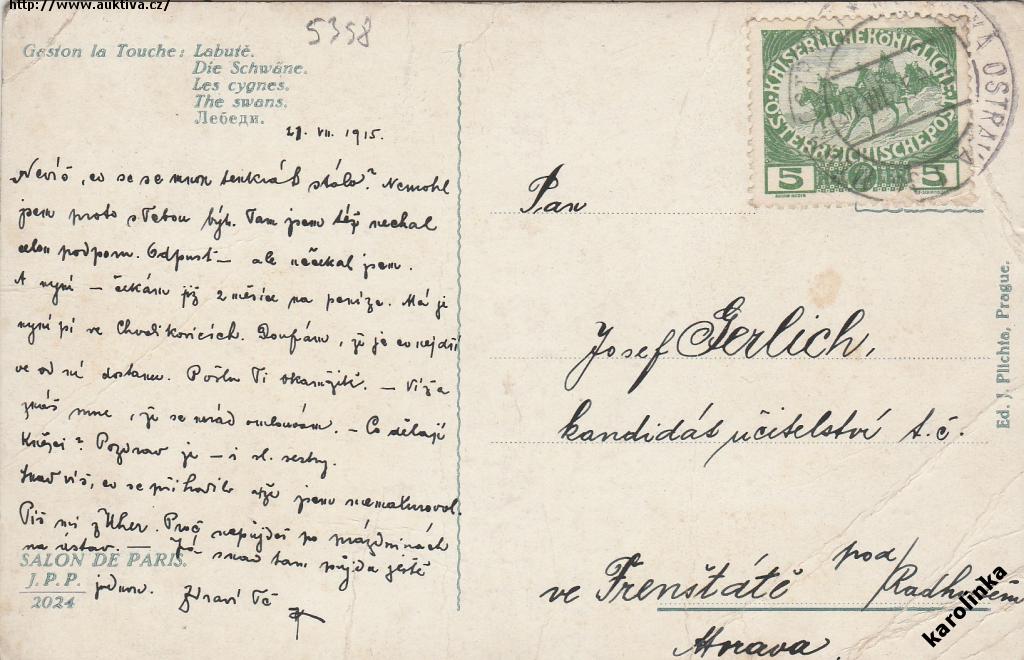 http://www.auktiva.cz/
5358
Gaston la Touche: Labutě.
Die Schwäne.
Les cygnes.
The swans.
Лебеди.
21. VII. 1915.
Nevíš, co se se mnou tenkrát stálo? Nemohl
jsem proto s Tebou být. Tam jsem též nechal
celou podporu. Odpusť – ale nečekal jsem.
A nyní – čekám již 2 měsíce na peníze. Má je
nyní pí ve Chvalkovicích. Doufám, že je co nejdří
ve od ní dostanu. Pošlu Ti okamžitě. – Víš a
znáš mne, že se nerad omlouvám. – Co dělají
Kněžci? Pozdrav je – i sl. sestry.
Snad víš, co se přihodilo a že jsem nematuroval.
Piš mi z Uher. Proč nepůjdeš po prázdninách
na ústav. — Já snad tam půjdu ještě
jednou. Zdraví Tě
SALON DE PARIS.
J.P.P.
2024
KAISERLICHEKÖNIGLICHE
ÖSTERREICHISCHEPOST
5 5
OSTRAVA
Pan
Josef Gerlich,
kandidás učitelství t.č.
ve Frenštátě pod/Radhoštěm
Morava.
Ed. J. Plichta, Prague.
karolinka